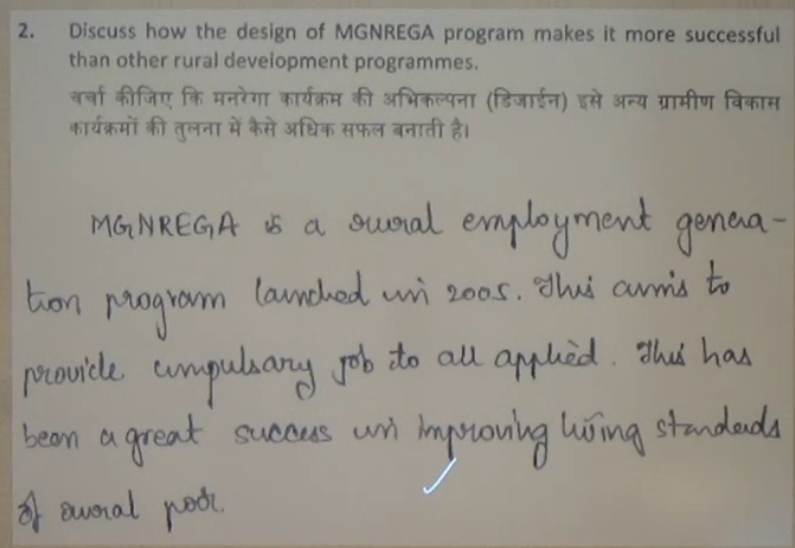 2. Discuss how the design of MGNREGA program makes it more successful
than other rural development programmes.
चर्चा कीजिए कि मनरेगा कार्यक्रम की अभिकल्पना (डिजाईन) इसे अन्य ग्रामीण विकास
कार्यक्रमों की तुलना में कैसे अधिक सफल बनाती है।
MGNREGA is a rural employment genera-
tion program launched in 2005. This aims to
provide compulsary job to all applied. This has
been a great success in improving living standards
of rural poor.